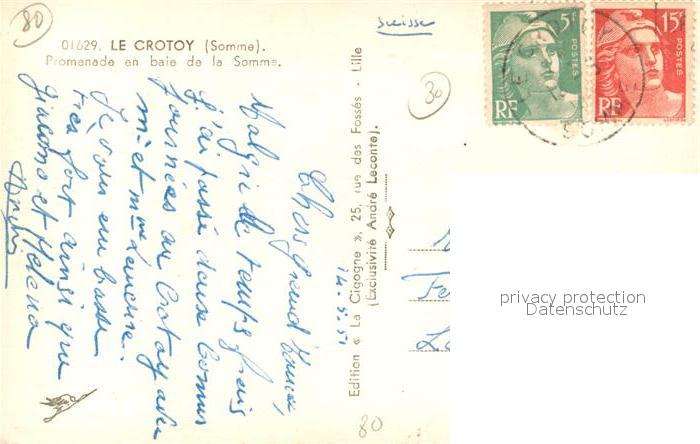 80
01629. LE CROTOY (Somme).
Promenade en baie de la Somme.
Suisse
5f
15f
POSTES
POSTES
RF
RF
30
14.5.51
Chers grand
Malgré le temps frais
j'ai passé deux bonnes
journées au Crotoy avec
m. et mme
Je vous embrasse
très fort ainsi que
Giacomo et Helena
Edition « La Cigogne », 25, rue des Fossés - Lille
(Exclusivité André Leconte).
80
privacy protection
Datenschutz